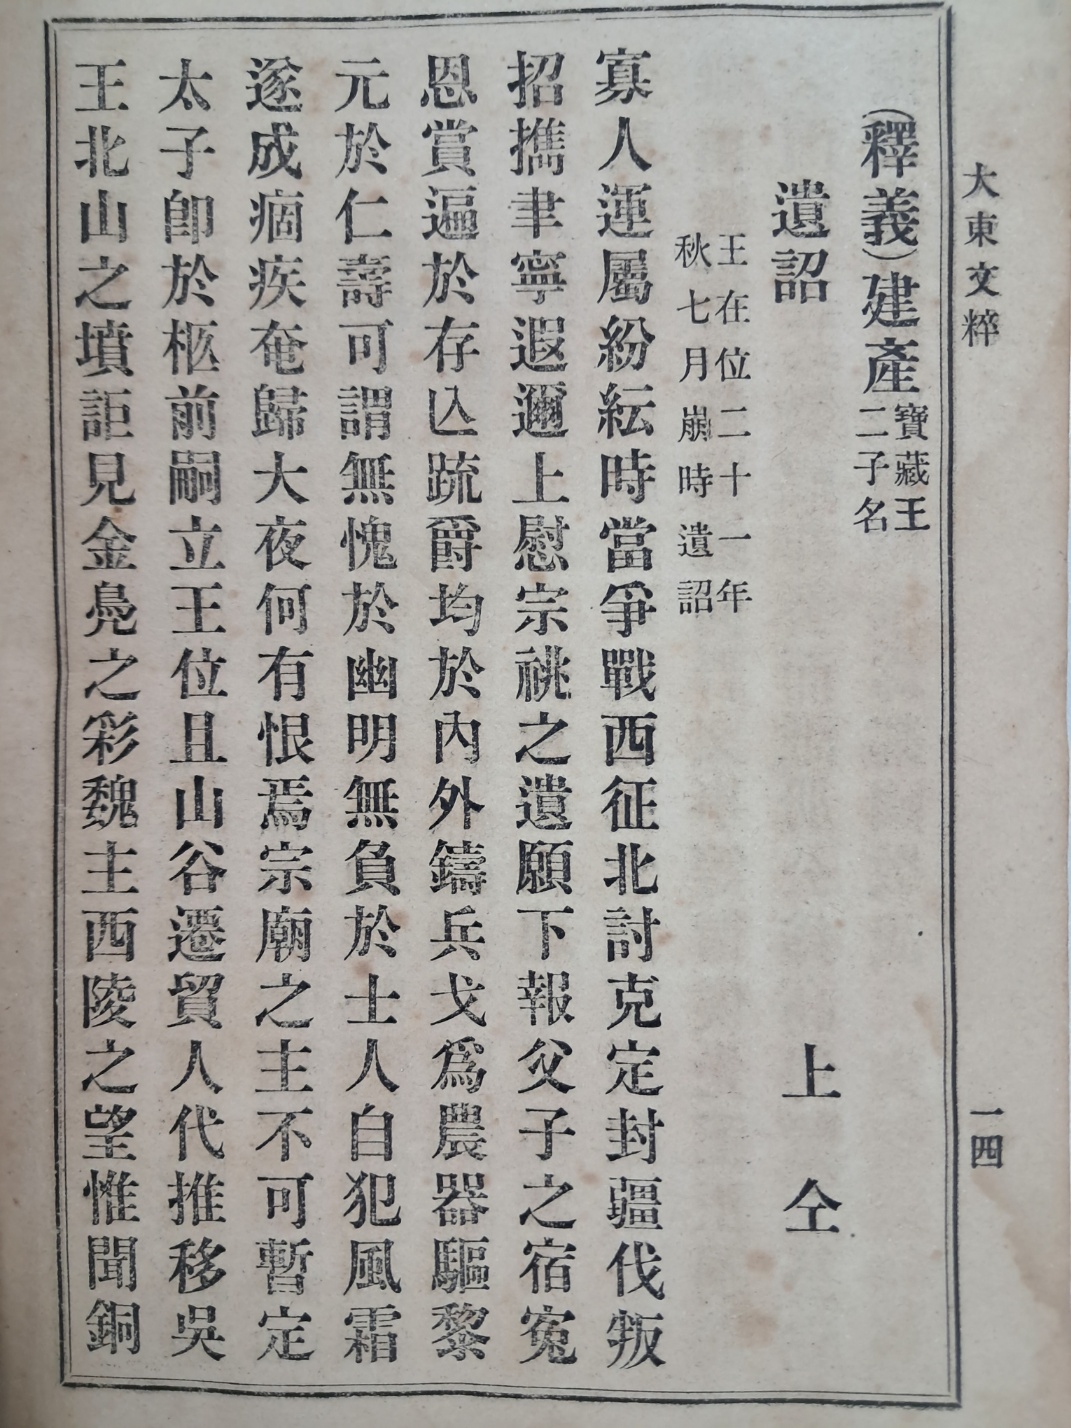 大東文粹
一四
(釋義)建產寶藏王二子名
遺詔
上仝
王在位二十一年
秋七月崩時遺詔
寡人運屬紛紜時當爭戰西征北討克定封疆伐叛
招攜聿寧遐邇上慰宗祧之遺願下報父子之宿寃
恩賞遍於存亾疏爵均於內外鑄兵戈爲農器驅黎
元於仁壽可謂無愧於幽明無負於士人自犯風霜
遂成痼疾奄歸大夜何有恨焉宗廟之主不可暫定
太子卽於柩前嗣立王位且山谷遷貿人代推移吳
王北山之墳詎見金鳧之彩魏主西陵之望惟聞銅